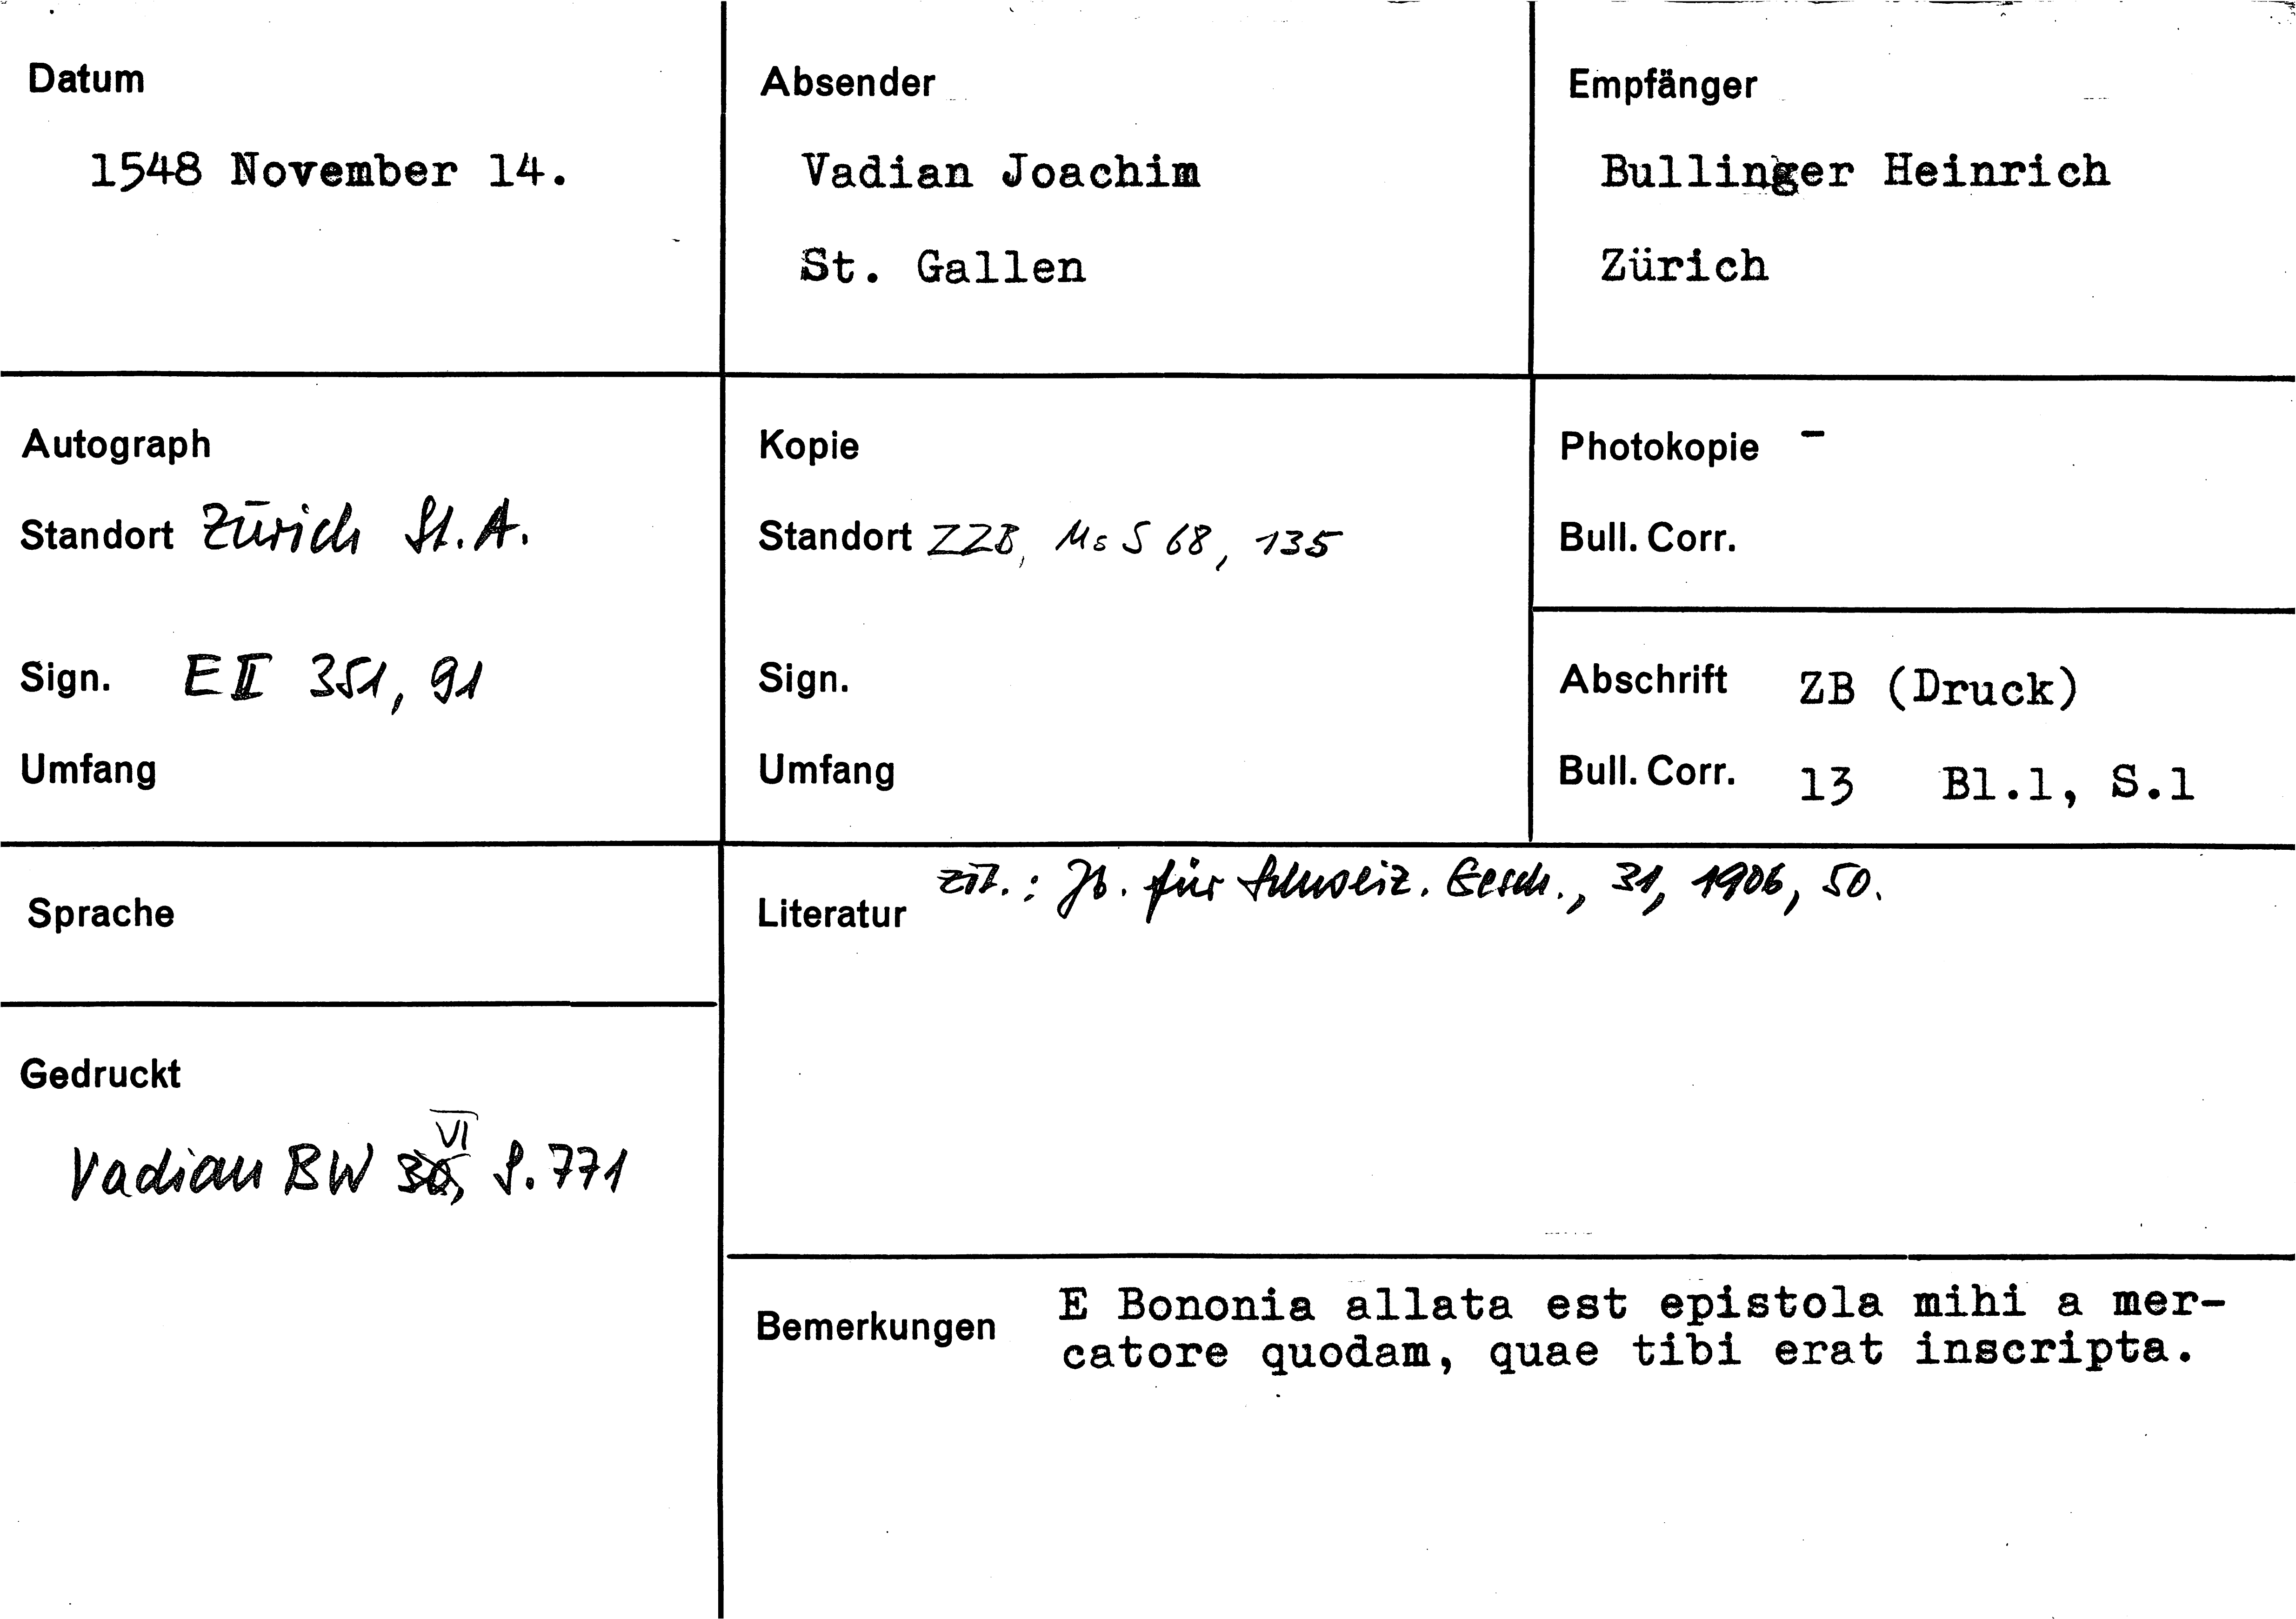 Datum
1548 November 14.
Absender
Vadian Joachim
St. Gallen
Empfänger
Bullinger Heinrich
Zürich
Autograph
Standort Zürich St. A.
Sign. E II 351, 91
Umfang
Kopie
Standort ZZB, Ms S 68, 135
Sign.
Umfang
Photokopie -
Bull. Corr.
Abschrift ZB (Druck)
Bull. Corr. 13 Bl.1, S.1
Sprache
Gedruckt
VI
Vadian BW 30, S. 771
Literatur zit.: Jb. für Schweiz. Gesch., 31, 1906, 50.
Bemerkungen E Bononia allata est epistola mihi a mer-
catore quodam, quae tibi erat inscripta.